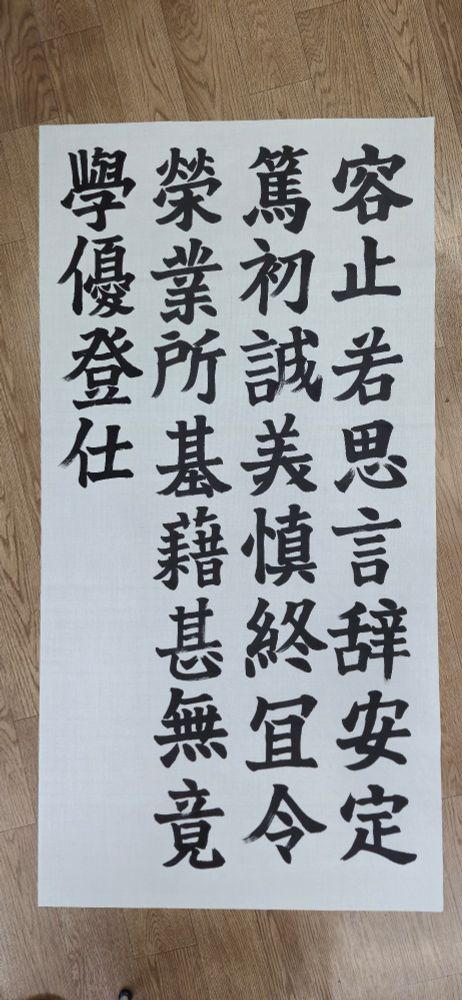 容止若思言辞安定
篤初誠美慎終冝令
榮業所基藉甚無竟
學優登仕